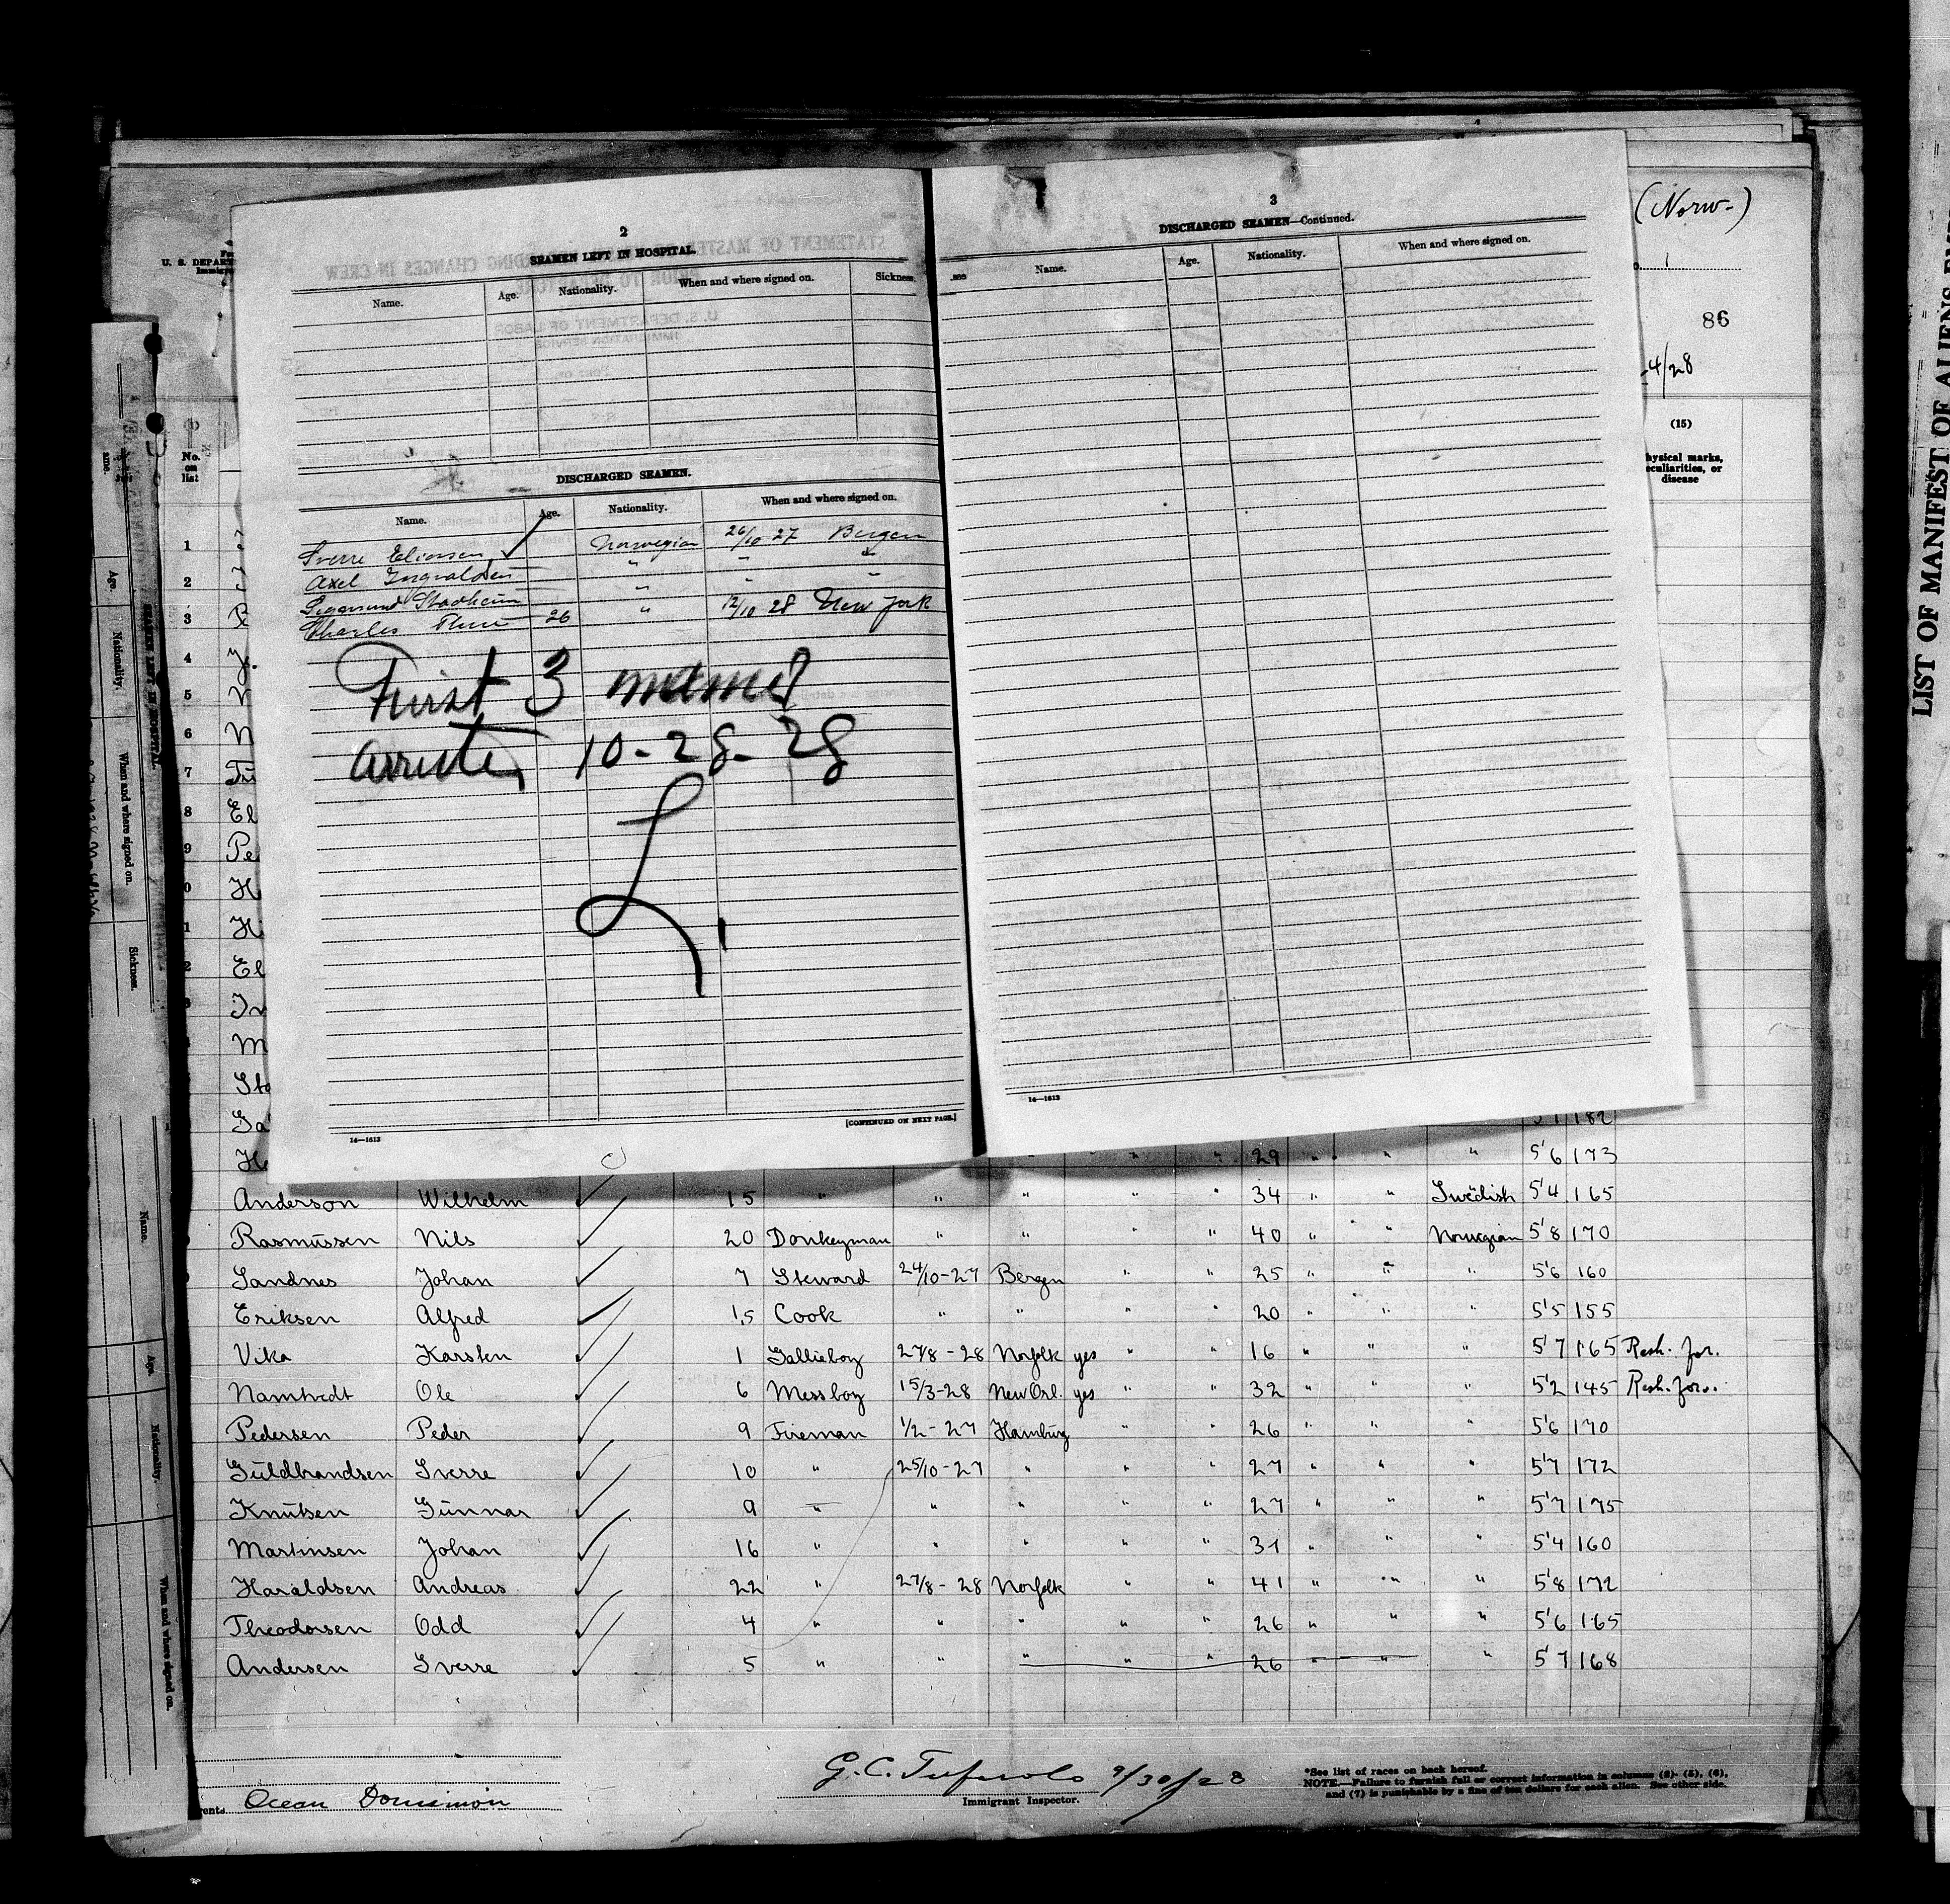 (Norw-)
U. S. DEPART
Immigr
1
86
4/28
(15)
hysical marks,
eculiarities, or
disease
No.
on
list
2
SEAMEN LEFT IN HOSPITAL.
Name. Age. Nationality. When and where signed on. Sickness
DISCHARGED SEAMEN.
Name. Age. Nationality. When and where signed on.
Sverre Eliassen Norwegian 26/10 27 Bergen
Axel Ingvaldsen " " "
Sigmund Stadheim " " "
Charles 26 " 12/10 28 New York
First 3 named
10-28-28
[CONTINUED ON NEXT PAGE.]
16—1613
3
DISCHARGED SEAMEN—Continued.
Name. Age. Nationality. When and where signed on.
16—1613
1
2
3
4
5
6
7
8 El
9 Pe
0 H
1 Hi
2 El
M
Sto
182
H 29 " " " 5'6 173
Anderson Wilhelm 15 " " " " " 34 " " Swedish 5'4 165
Rasmussen Nils 20 Donkeyman " " " 40 " " Norwegian 5'8 170
Sandnes Johan 7 Steward 24/10-27 Bergen " " 25 " " " 5'6 160
Eriksen Alfred 1,5 Cook " " " " 20 " " " 5'5 155
Vika Karsten 1 Gallieboy 27/8-28 Norfolk yes " " 16 " " " 5'7 165 Resh. for.
Namtvedt Ole 6 Messboy 15/3-28 New Orl. yes " " 32 " " " 5'2 145 Resh. for.
Pedersen Peder 9 Fireman 1/2-27 Hamburg " " 26 " " " 5'6 170
Guldbrandsen Sverre 10 " 25/10-27 " " " 27 " " " 5'7 172
Knutsen Gunnar 9 " " " " " 27 " " " 5'7 175
Martinsen Johan 16 " " " " " 31 " " " 5'4 160
Haraldsen Andreas 22 " 27/8-28 Norfolk " " 41 " " " 5'8 172
Theodorsen Odd 4 " " " " " 26 " " " 5'6 165
Andersen Sverre 5 " " " " " 26 " " " 5'7 168
Ocean Dominion
G. C. 9/30/28
Immigrant Inspector.
*See list of races on back hereof.
NOTE.—Failure to furnish full or correct information in columns (2), (5), (6),
and (7) is punishable by a fine of ten dollars for each alien. See other side.
Name.
Age.
Nationality.
When and where signed on.
Sickness.
SEAMEN LEFT IN HOSPITAL.
Name.
Age.
Nationality.
When and where signed on.
LIST OF MANIFEST OF ALIENS EMP